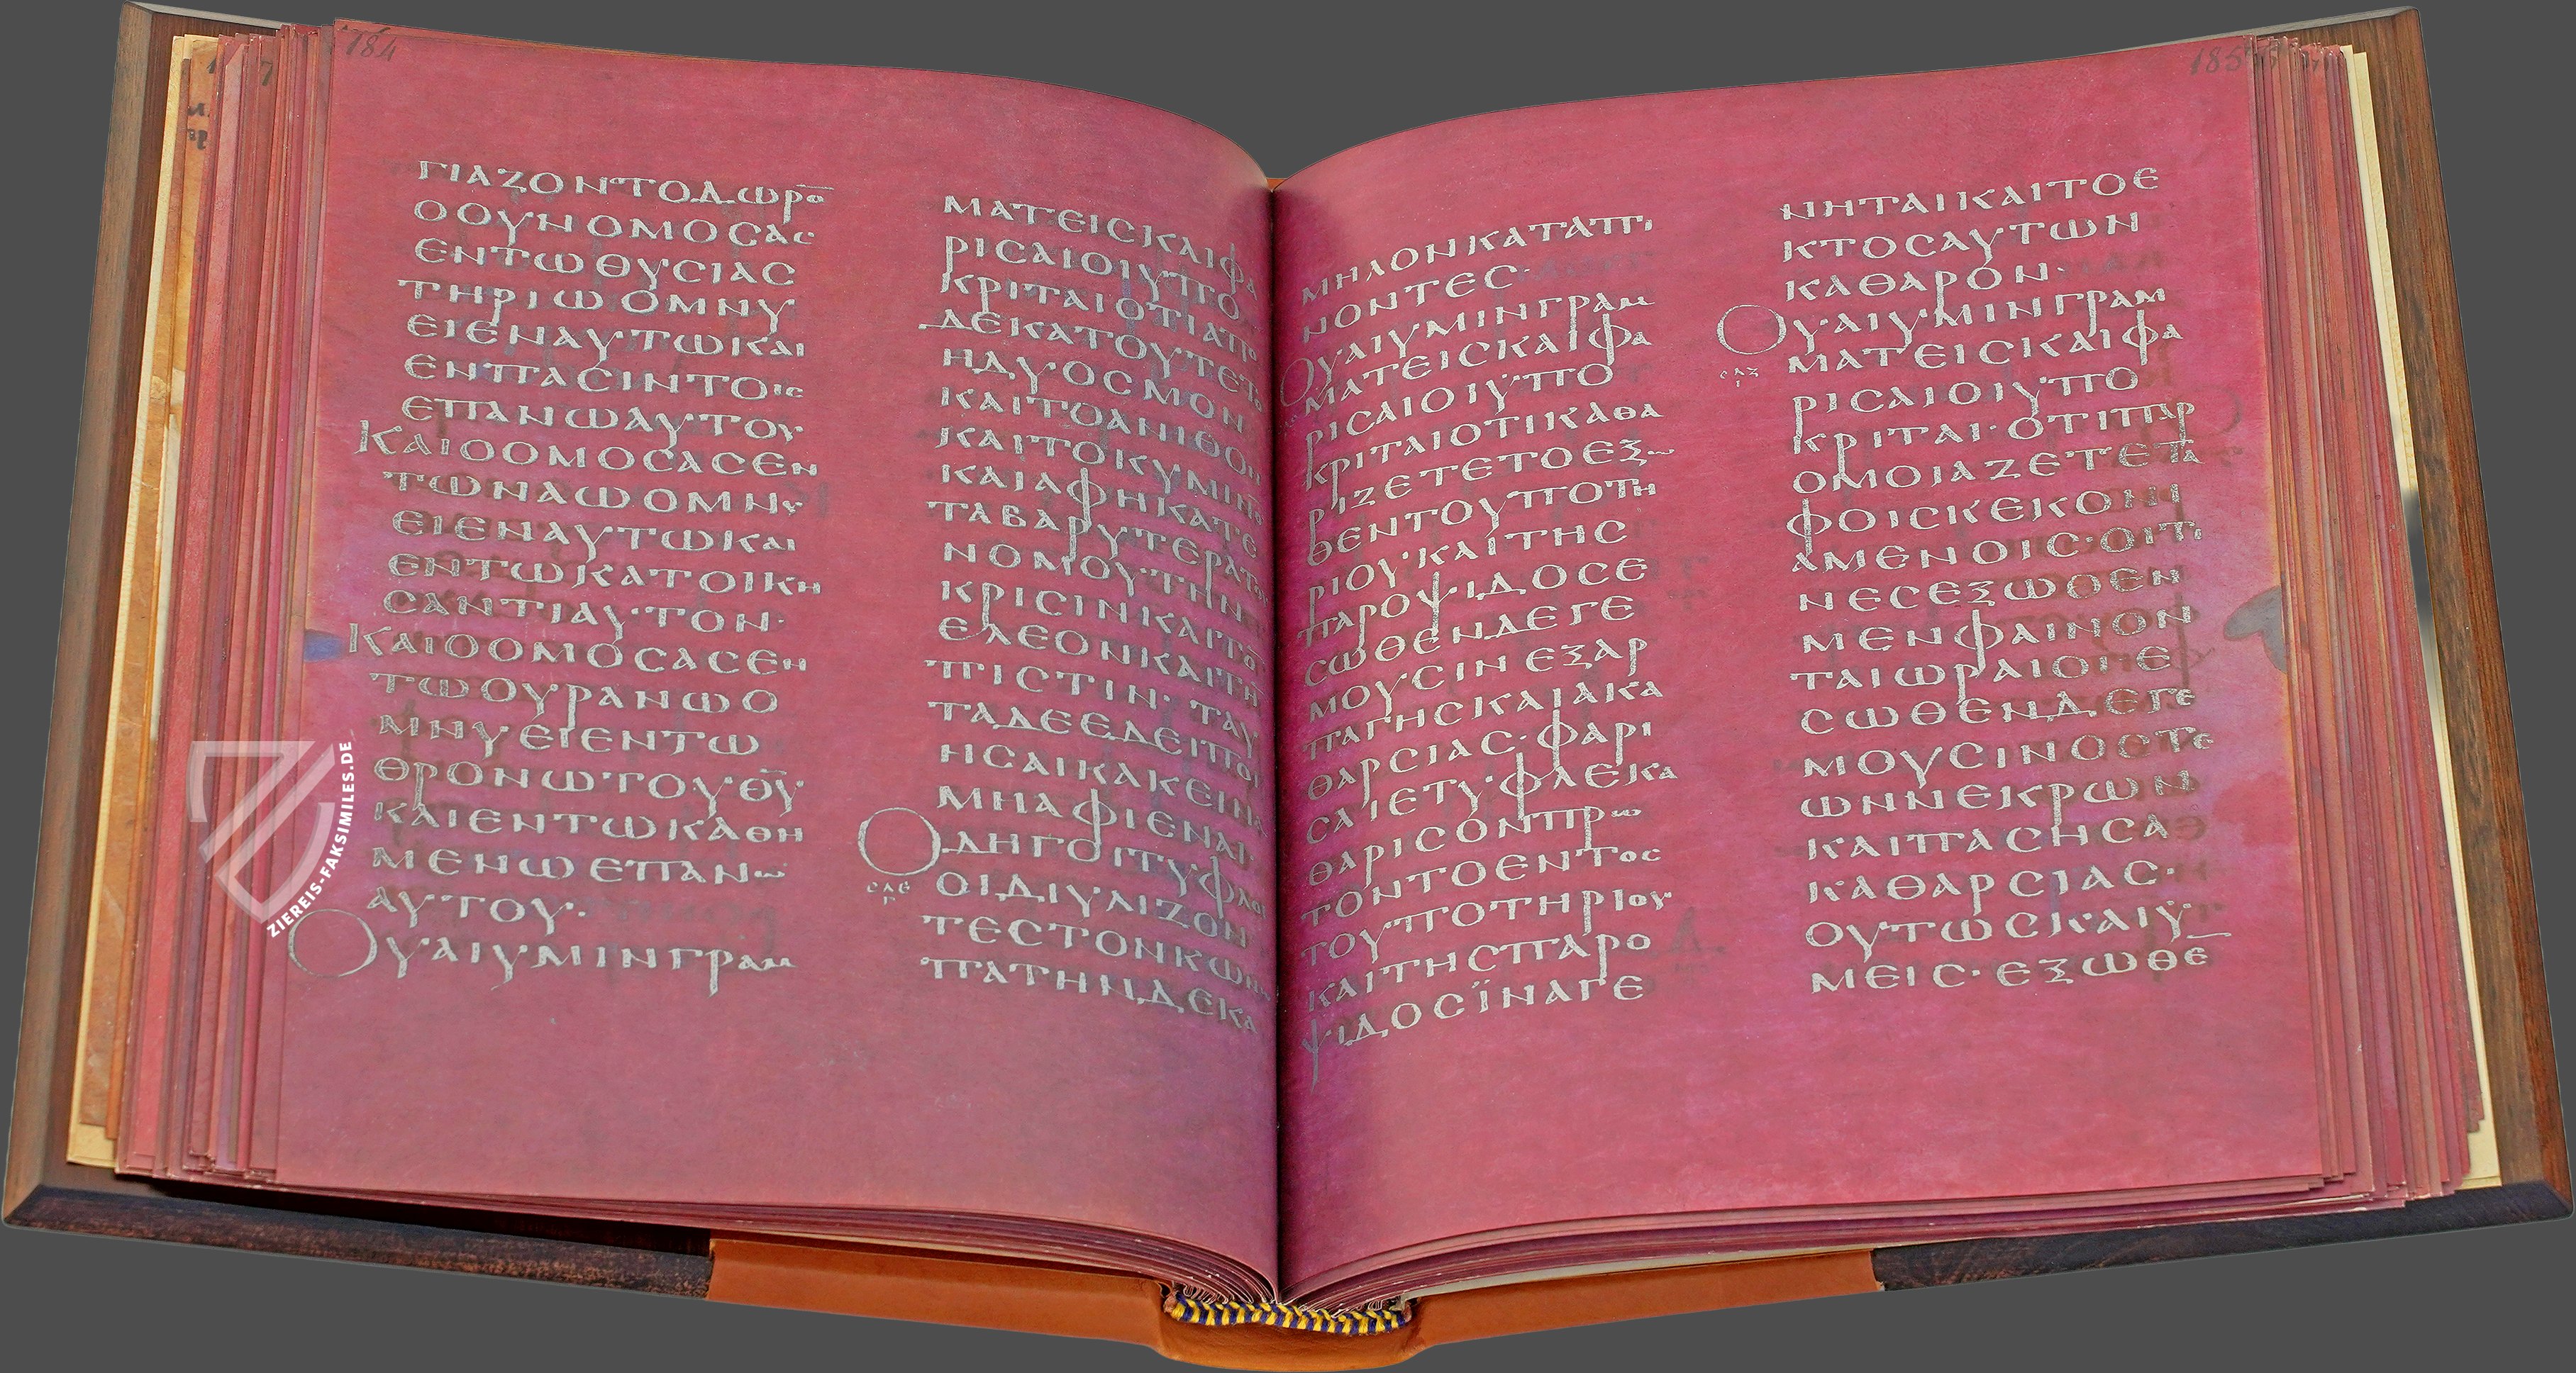 184
ΓΙΑΖΟΝΤΟΔΩΡΟ̅
ΟΟΥΝΟΜΟСΑС
ΕΝΤΩΘΥСΙΑС
ΤΗΡΙΩΟΜΝΥ
ΕΙΕΝΑΥΤΩΚΑΙ
ΕΝΠΑСΙΝΤΟΙС
ΕΠΑΝΩΑΥΤΟΥ
ΚΑΙΟΟΜΟСΑСΕΝ
ΤΩΝΑΩΟΜΝΥ
ΕΙΕΝΑΥΤΩΚΑΙ
ΕΝΤΩΚΑΤΟΙΚΗ
СΑΝΤΙΑΥΤΟΝ·
ΚΑΙΟΟΜΟСΑСΕΝ
ΤΩΟΥΡΑΝΩΟ
ΜΝΥΕΙΕΝΤΩ
ΘΡΟΝΩΤΟΥΘ̅Υ̅
ΚΑΙΕΝΤΩΚΑΘΗ
ΜΕΝΩΕΠΑΝΩ
ΑΥΤΟΥ·
ΟΥΑΙΥΜΙΝΓΡΑΜ
ΜΑΤΕΙСΚΑΙΦΑ
ΡΙСΑΙΟΙΥΠΟ
ΚΡΙΤΑΙΟΤΙΑΠΟ
ΔΕΚΑΤΟΥΤΕΤΟ
ΗΔΥΟСΜΟΝ
ΚΑΙΤΟΑΝΙΘΟΝ
ΚΑΙΤΟΚΥΜΙΝΟ̅
ΚΑΙΑΦΗΚΑΤΕ
ΤΑΒΑΡΥΤΕΡΑΤΟΥ
ΝΟΜΟΥΤΗΝ
ΚΡΙСΙΝΚΑΙΤΟ̅
ΕΛΕΟΝΚΑΙΤΗ̅
ΠΙСΤΙΝ·ΤΑΥ
ΤΑΔΕΕΔΕΙΠΟΙ
ΗСΑΙΚΑΚΕΙΝΑ
ΜΗΑΦΙΕΝΑΙ·
ΟΔΗΓΟΙΤΥΦΛΟΙ
СΛΕ
Γ
ΟΙΔΙΥΛΙΖΟΝ
ΤΕСΤΟΝΚΩΝΩ
ΠΑΤΗΝΔΕΚΑ
185
ΜΗΛΟΝΚΑΤΑΠΙ
ΝΟΝΤΕС·
ΟΥΑΙΥΜΙΝΓΡΑΜ
ΜΑΤΕΙСΚΑΙΦΑ
ΡΙСΑΙΟΙΥΠΟ
ΚΡΙΤΑΙΟΤΙΚΑΘΑ
ΡΙΖΕΤΕΤΟΕΞΩ
ΘΕΝΤΟΥΠΟΤΗ
ΡΙΟΥΚΑΙΤΗС
ΠΑΡΟΨΙΔΟСΕ
СΩΘΕΝΔΕΓΕ
ΜΟΥСΙΝΕΞΑΡ
ΠΑΓΗСΚΑΙΑΚΑ
ΘΑΡСΙΑС·ΦΑΡΙ
СΑΙΕΤΥΦΛΕΚΑ
ΘΑΡΙСΟΝΠΡΩ
ΤΟΝΤΟΕΝΤΟС
ΤΟΥΠΟΤΗΡΙΟΥ
ΚΑΙΤΗСΠΑΡΟ
ΨΙΔΟСΪΝΑΓΕ
ΝΗΤΑΙΚΑΙΤΟΕ
ΚΤΟСΑΥΤΩΝ
ΚΑΘΑΡΟΝ·
ΟΥΑΙΥΜΙΝΓΡΑΜ
ΜΑΤΕΙСΚΑΙΦΑ
СΛΖ
ΡΙСΑΙΟΙΥΠΟ
ΚΡΙΤΑΙ·ΟΤΙΠΑΡ
ΟΜΟΙΑΖΕΤΕΤΑ
ΦΟΙСΚΕΚΟΝΙ
ΑΜΕΝΟΙС·ΟΙΤΙ
ΝΕСΕΞΩΘΕΝ
ΜΕΝΦΑΙΝΟΝ
ΤΑΙΩΡΑΙΟΙΕ
СΩΘΕΝΔΕΓΕ
ΜΟΥСΙΝΟСΤΕ
ΩΝΝΕΚΡΩΝ
ΚΑΙΠΑСΗСΑ
ΚΑΘΑΡСΙΑС·
ΟΥΤΩСΚΑΙΥ
ΜΕΙС·ΕΞΩΘΕ̅
ZIEREIS-FAKSIMILES.DE